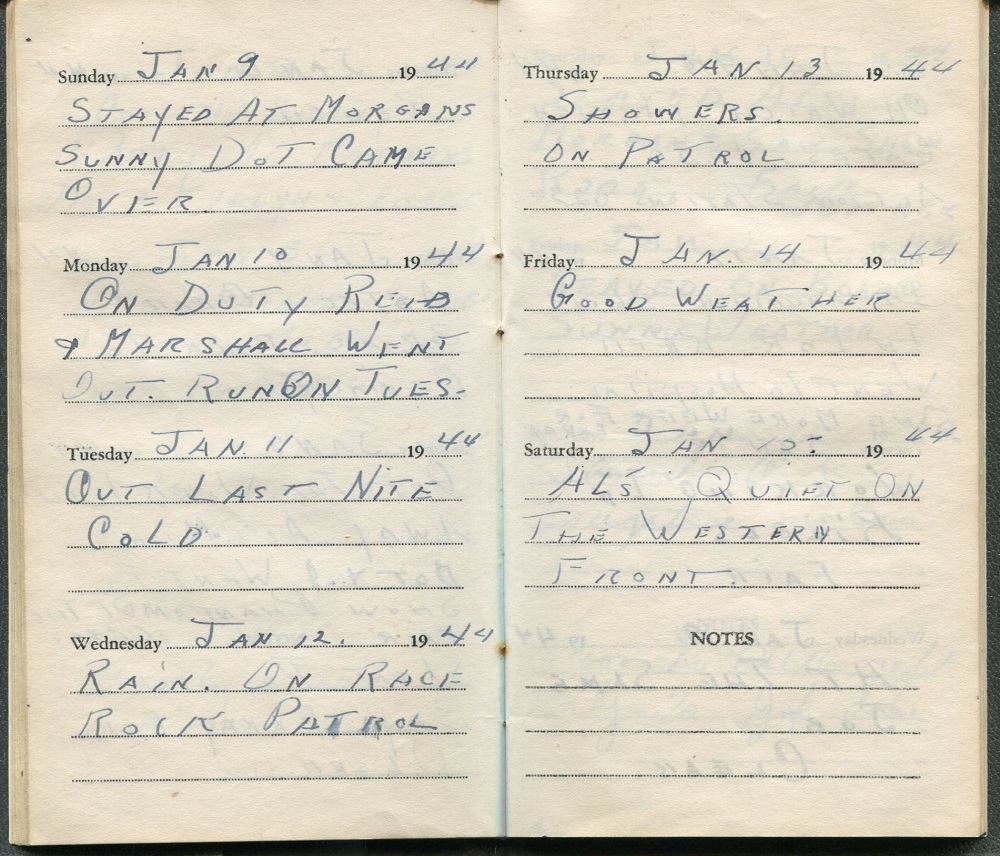 Sunday JAN 9 19 44
STAYED AT MORGANS
SUNNY DOT CAME
OVER.
Monday JAN 10 19 44
ON DUTY REID
& MARSHALL WENT
OUT. RUN ON TUES-
Tuesday JAN. 11 19 44
OUT LAST NITE
COLD.
Wednesday JAN 12. 19 44
RAIN. ON RACE
ROCK PATROL
Thursday JAN 13 19 44
SHOWERS.
ON PATROL
Friday JAN. 14 19 44
GOOD WEATHER
Saturday JAN 15: 19 44
ALS QUIET ON
THE WESTERN
FRONT.
NOTES